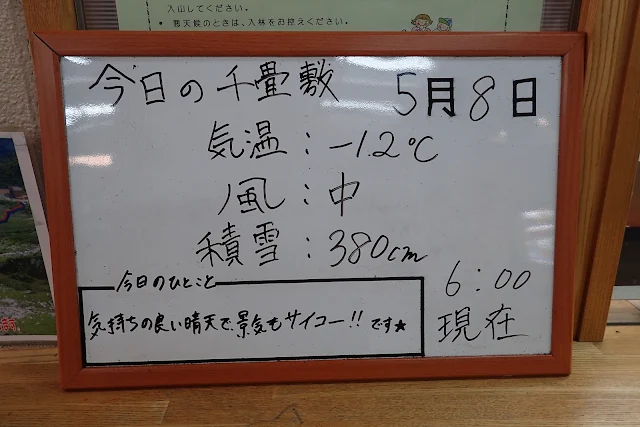 入山してください。
• 悪天候のときは、入林をお控えください。
今日の千畳敷 5月8日
気温:-1.2℃
風:中
積雪:380cm
今日のひとこと
気持ちの良い晴天で、景気もサイコー!!です★
6:00
現在